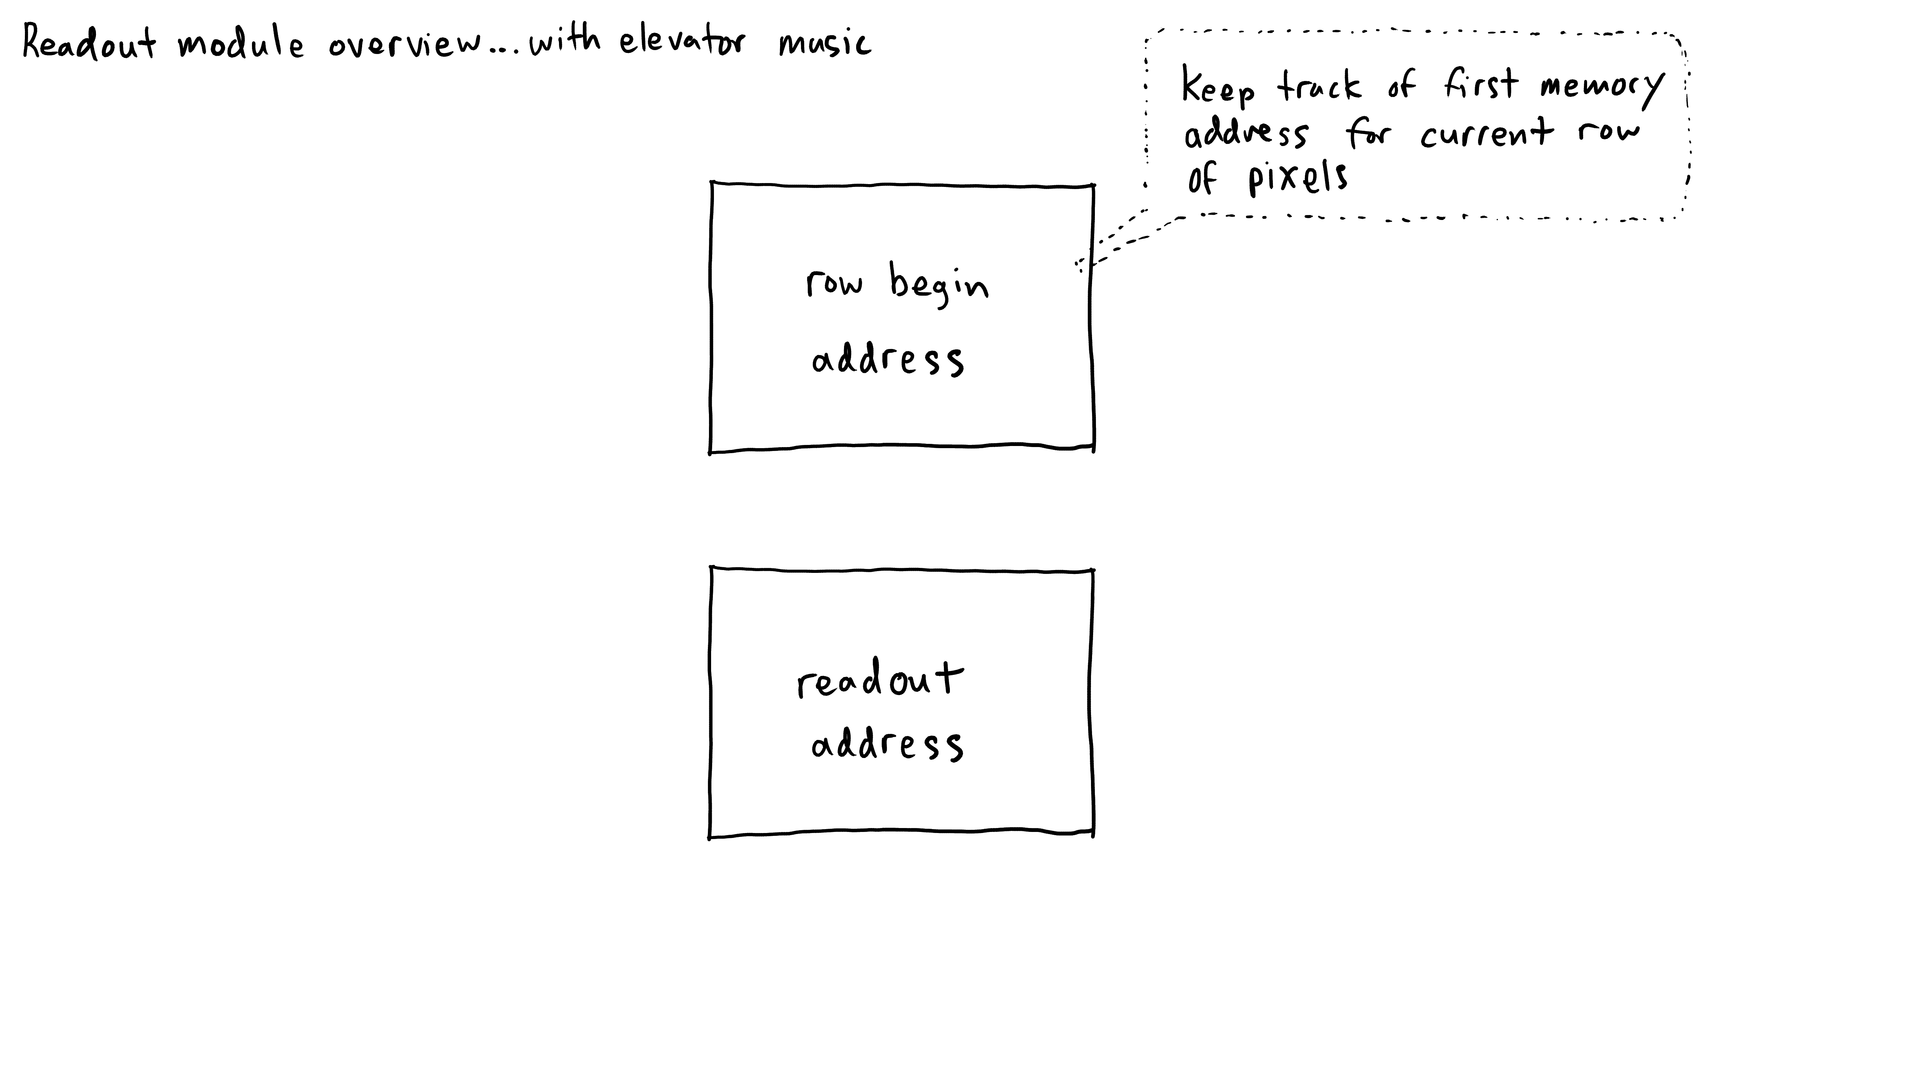 Readout module overview...with elevator music
Keep track of first memory
address for current row
of pixels
row begin
address
readout
address